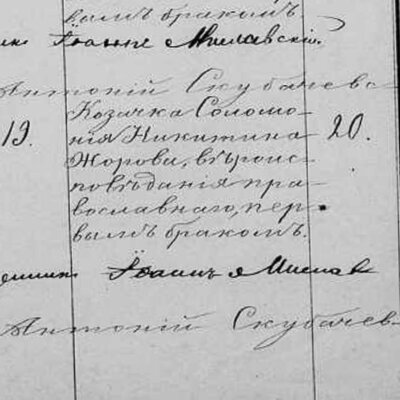 вымъ бракомъ
Іоаннъ Милавскій.
Антоній Скубачевс-
Козачка Соломо-
19. нія Никитина 20.
Жорова, вѣроис-
повѣданія пра-
вославнаго, пер-
вымъ бракомъ.
Іоаннъ Милав
Антоній Скубачев-